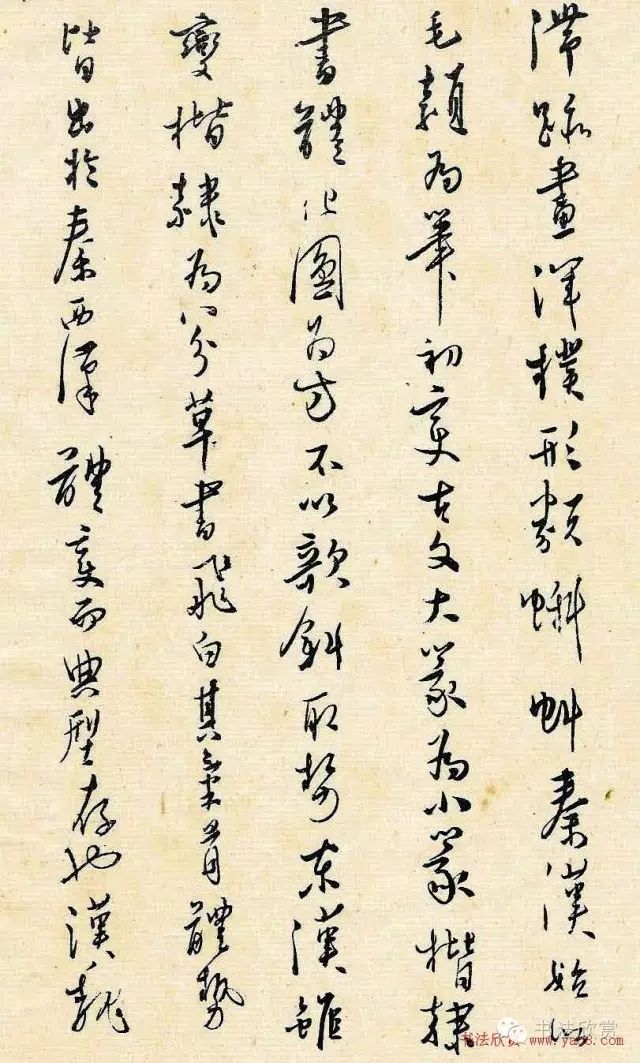 滞跡畫渾樸形類蝌蚪秦漢始以
毛穎為筆初變古文大篆為小篆楷隸
書體化圓為方不以欹斜取勢東漢雖
變楷隸為八分草書飛白其氣骨體勢
皆出於秦西漢體變而典型存也漢魏
书法欣赏
书法欣赏